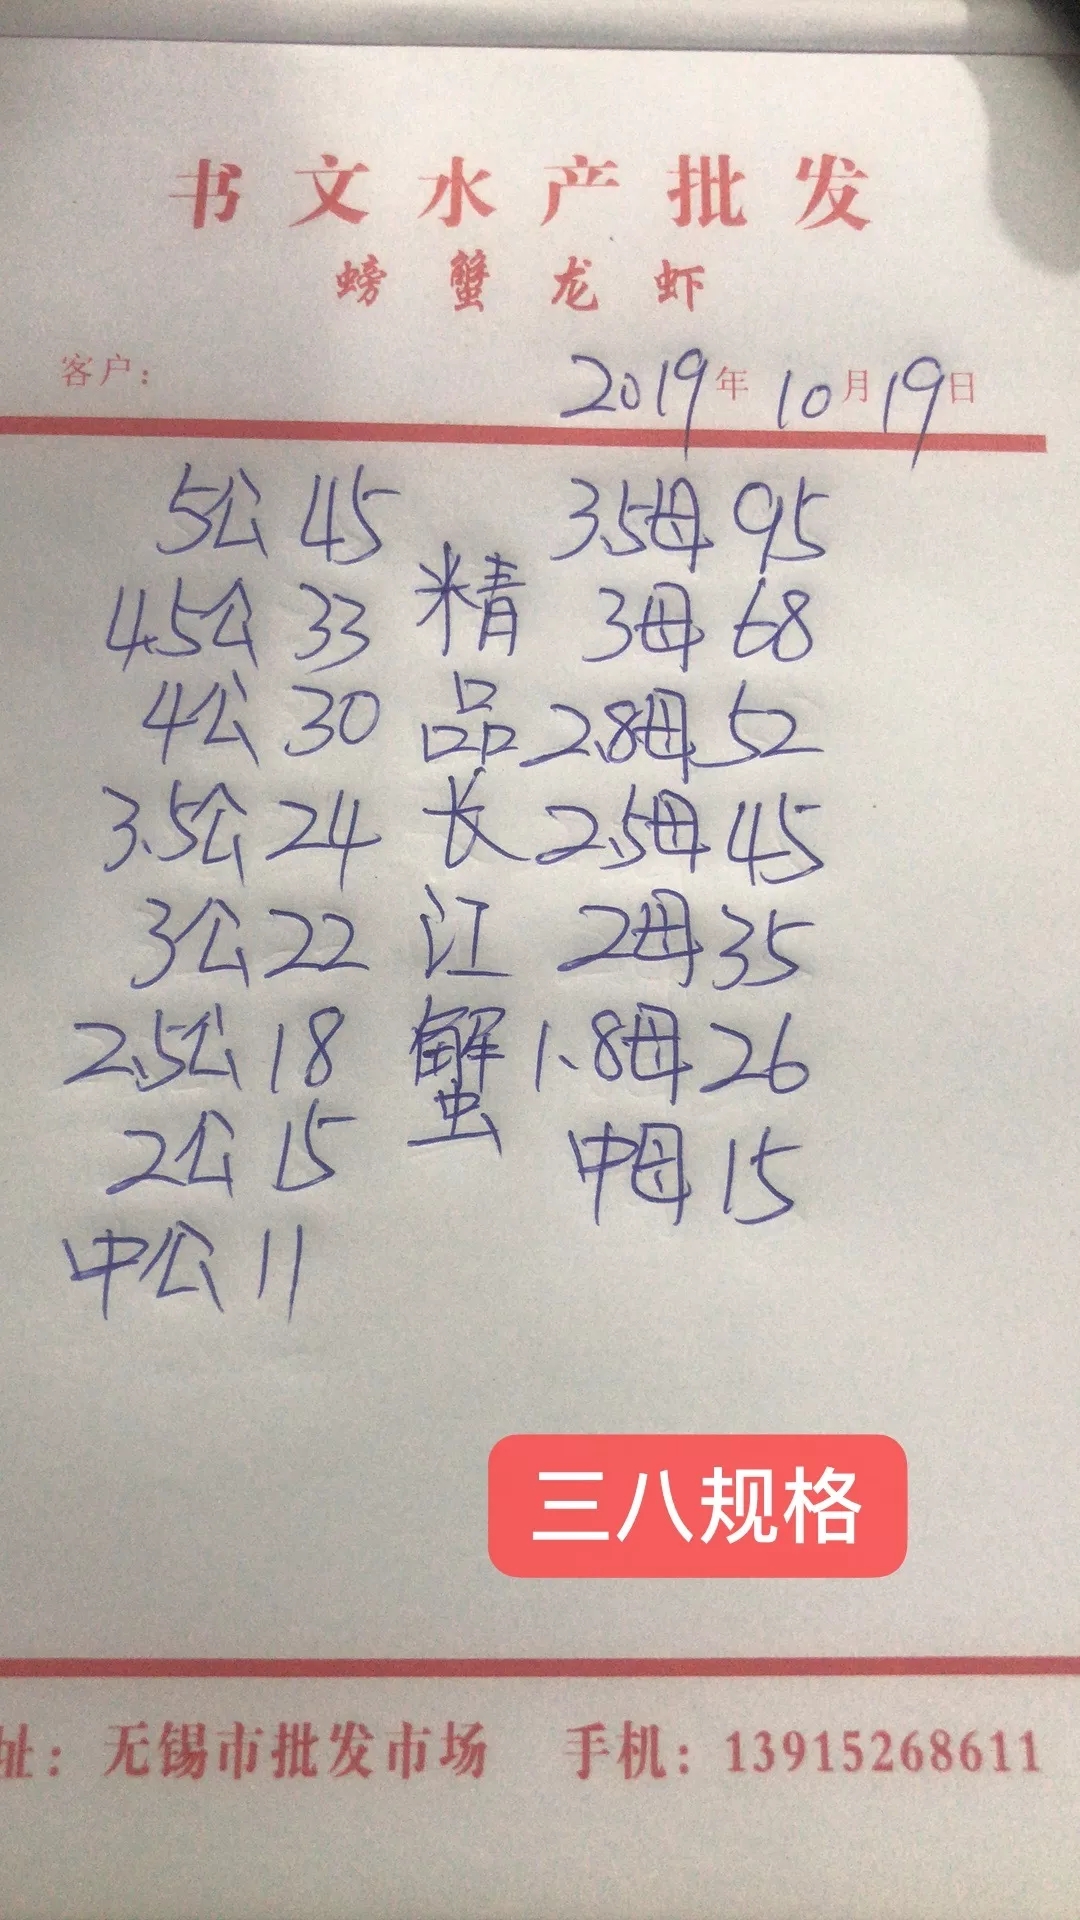 书文水产批发
螃蟹龙虾
客户： 2019年10月19日
5公 45 3.5母 95
4.5公 33 精 3母 68
4公 30 品 2.8母 52
3.5公 24 长 2.5母 45
3公 22 江 2母 35
2.5公 18 蟹 1.8母 26
2公 15 中母 15
中公 11
三八规格
址：无锡市批发市场 手机：13915268611